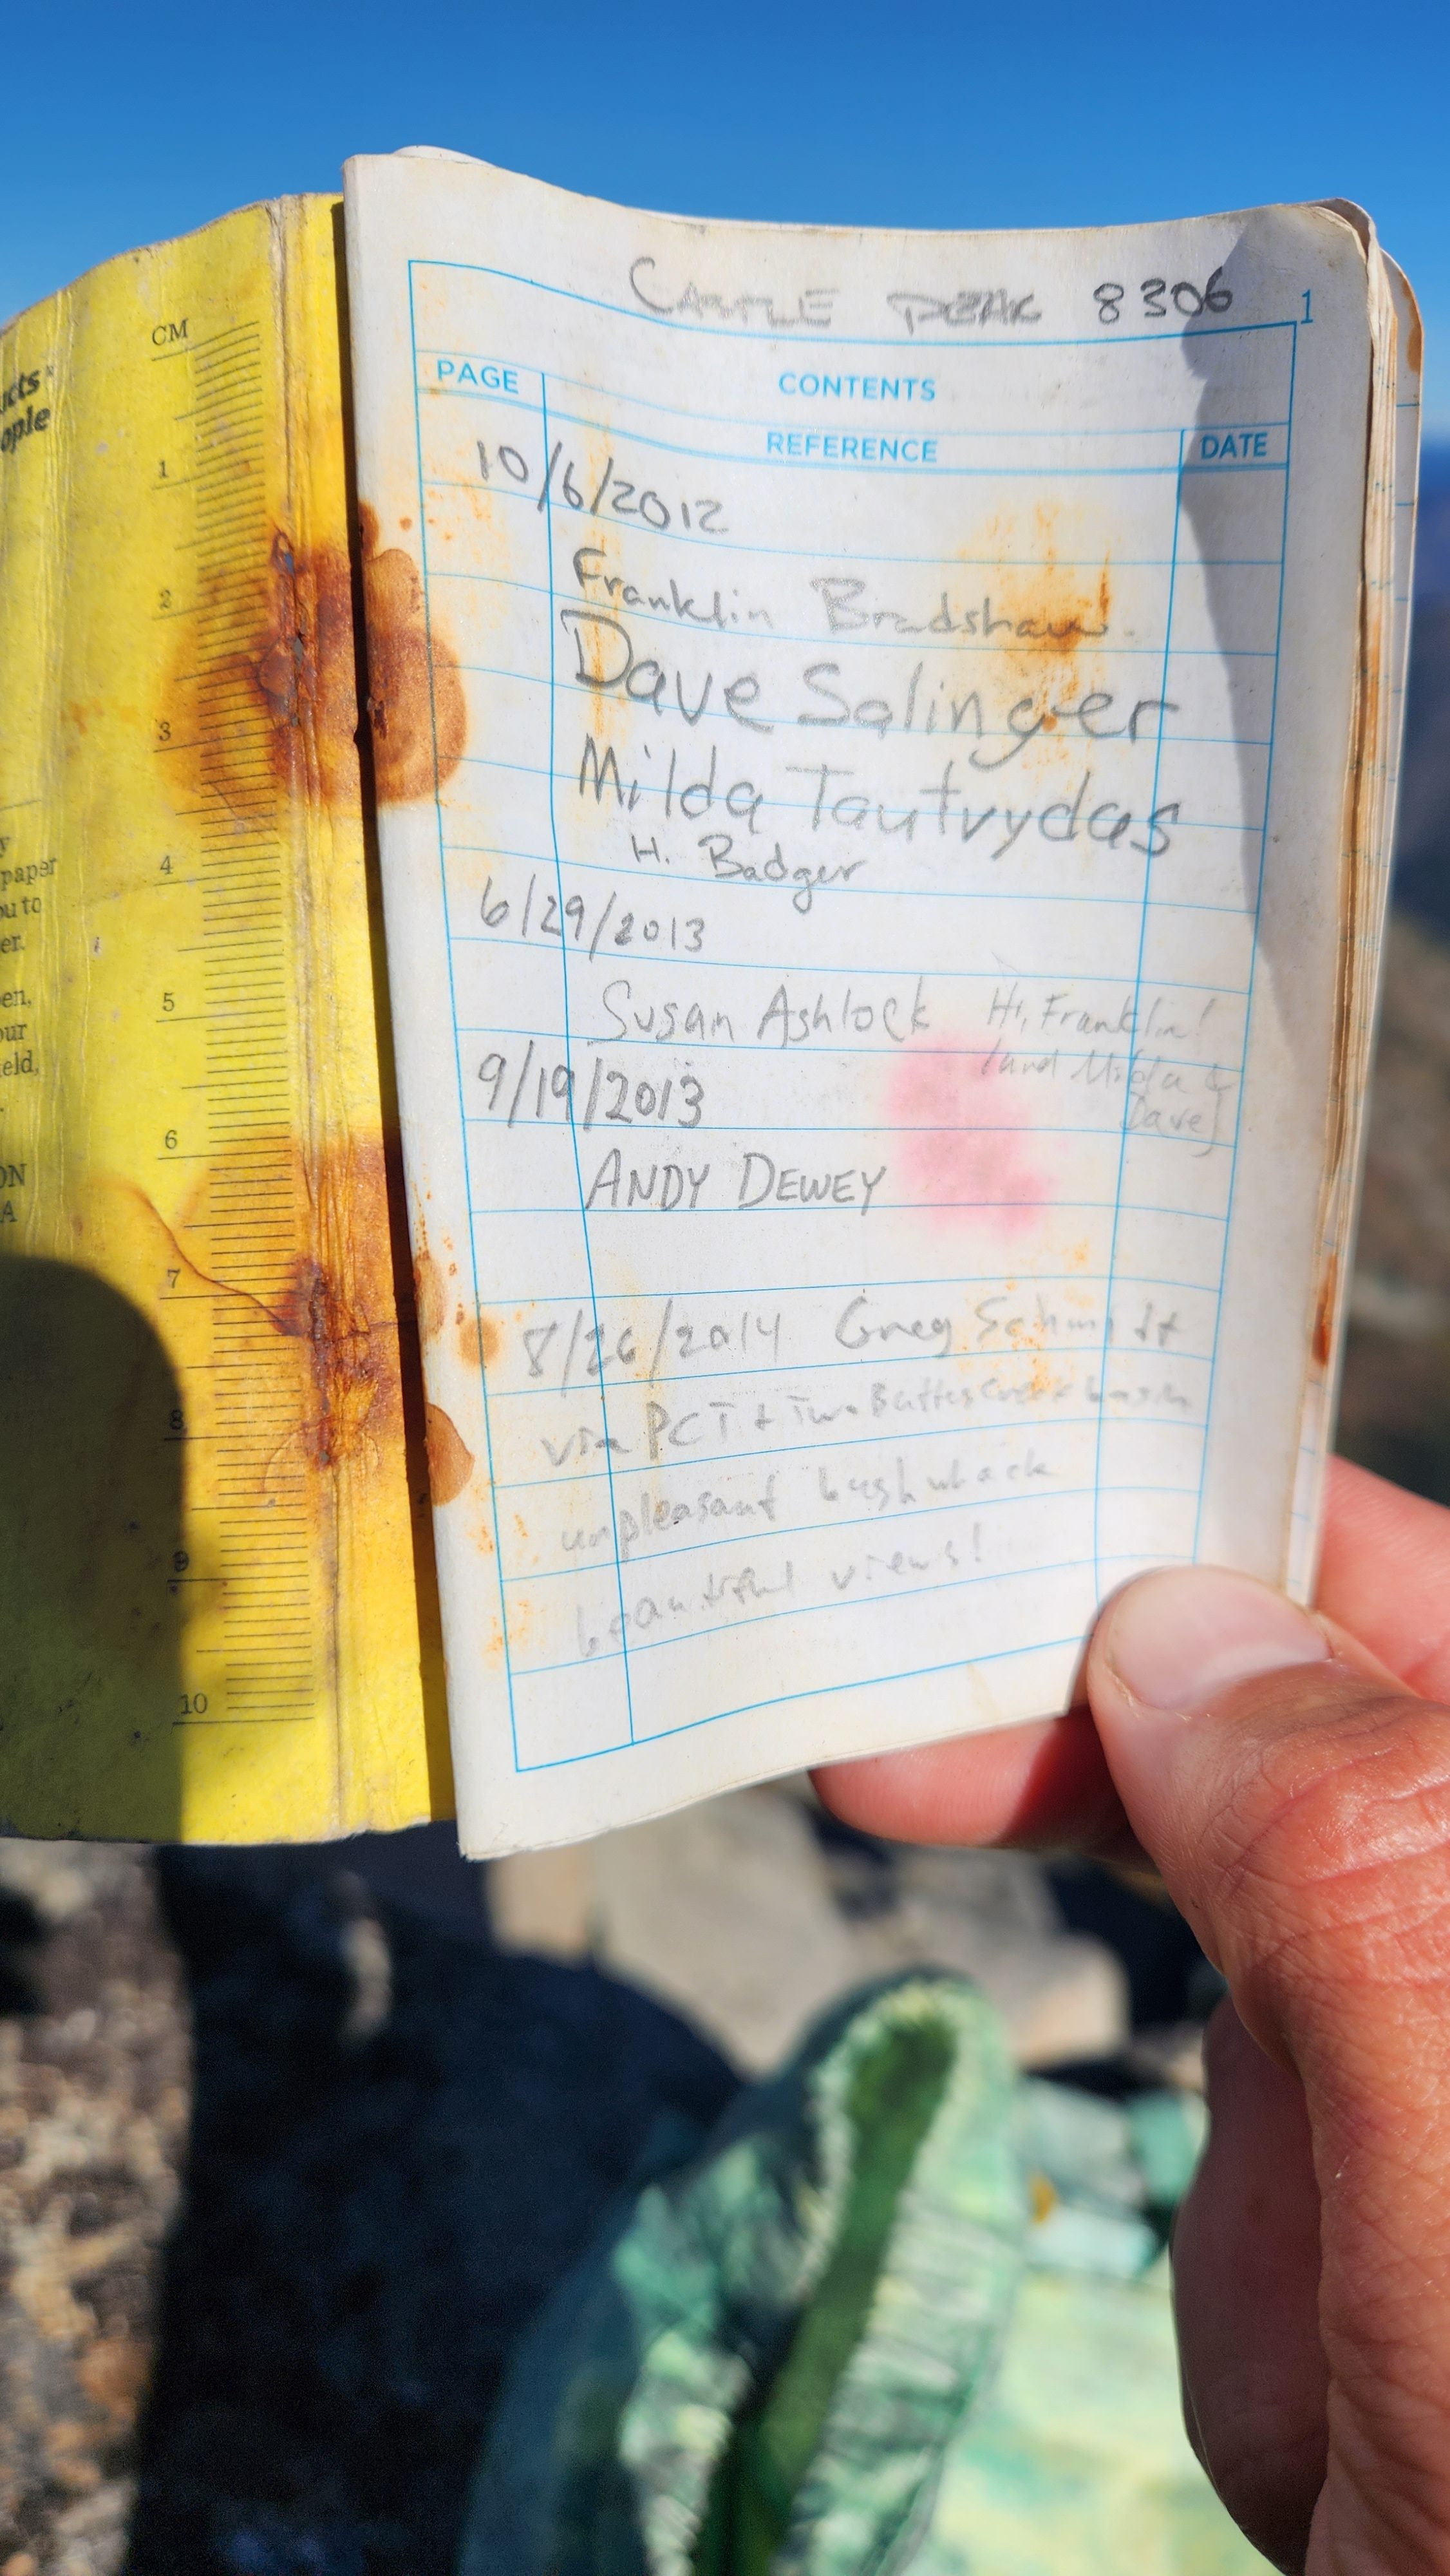 CASTLE PEAK 8306
1
PAGE CONTENTS
REFERENCE DATE
10/6/2012
Franklin Bradshaw
Dave Salinger
Milda Tautvydas
H. Badger
6/29/2013
Susan Ashlock Hi, Franklin!
(and Milda &
Dave)
9/19/2013
ANDY DEWEY
8/26/2014 Greg Schmidt
via PCT + Two Buttes Creek basin
unpleasant bushwhack
beautiful views!
CM
1
2
3
4
5
6
7
8
9
10
ucts
ople
y
paper
ou to
er.
en,
our
eld,
ON
A